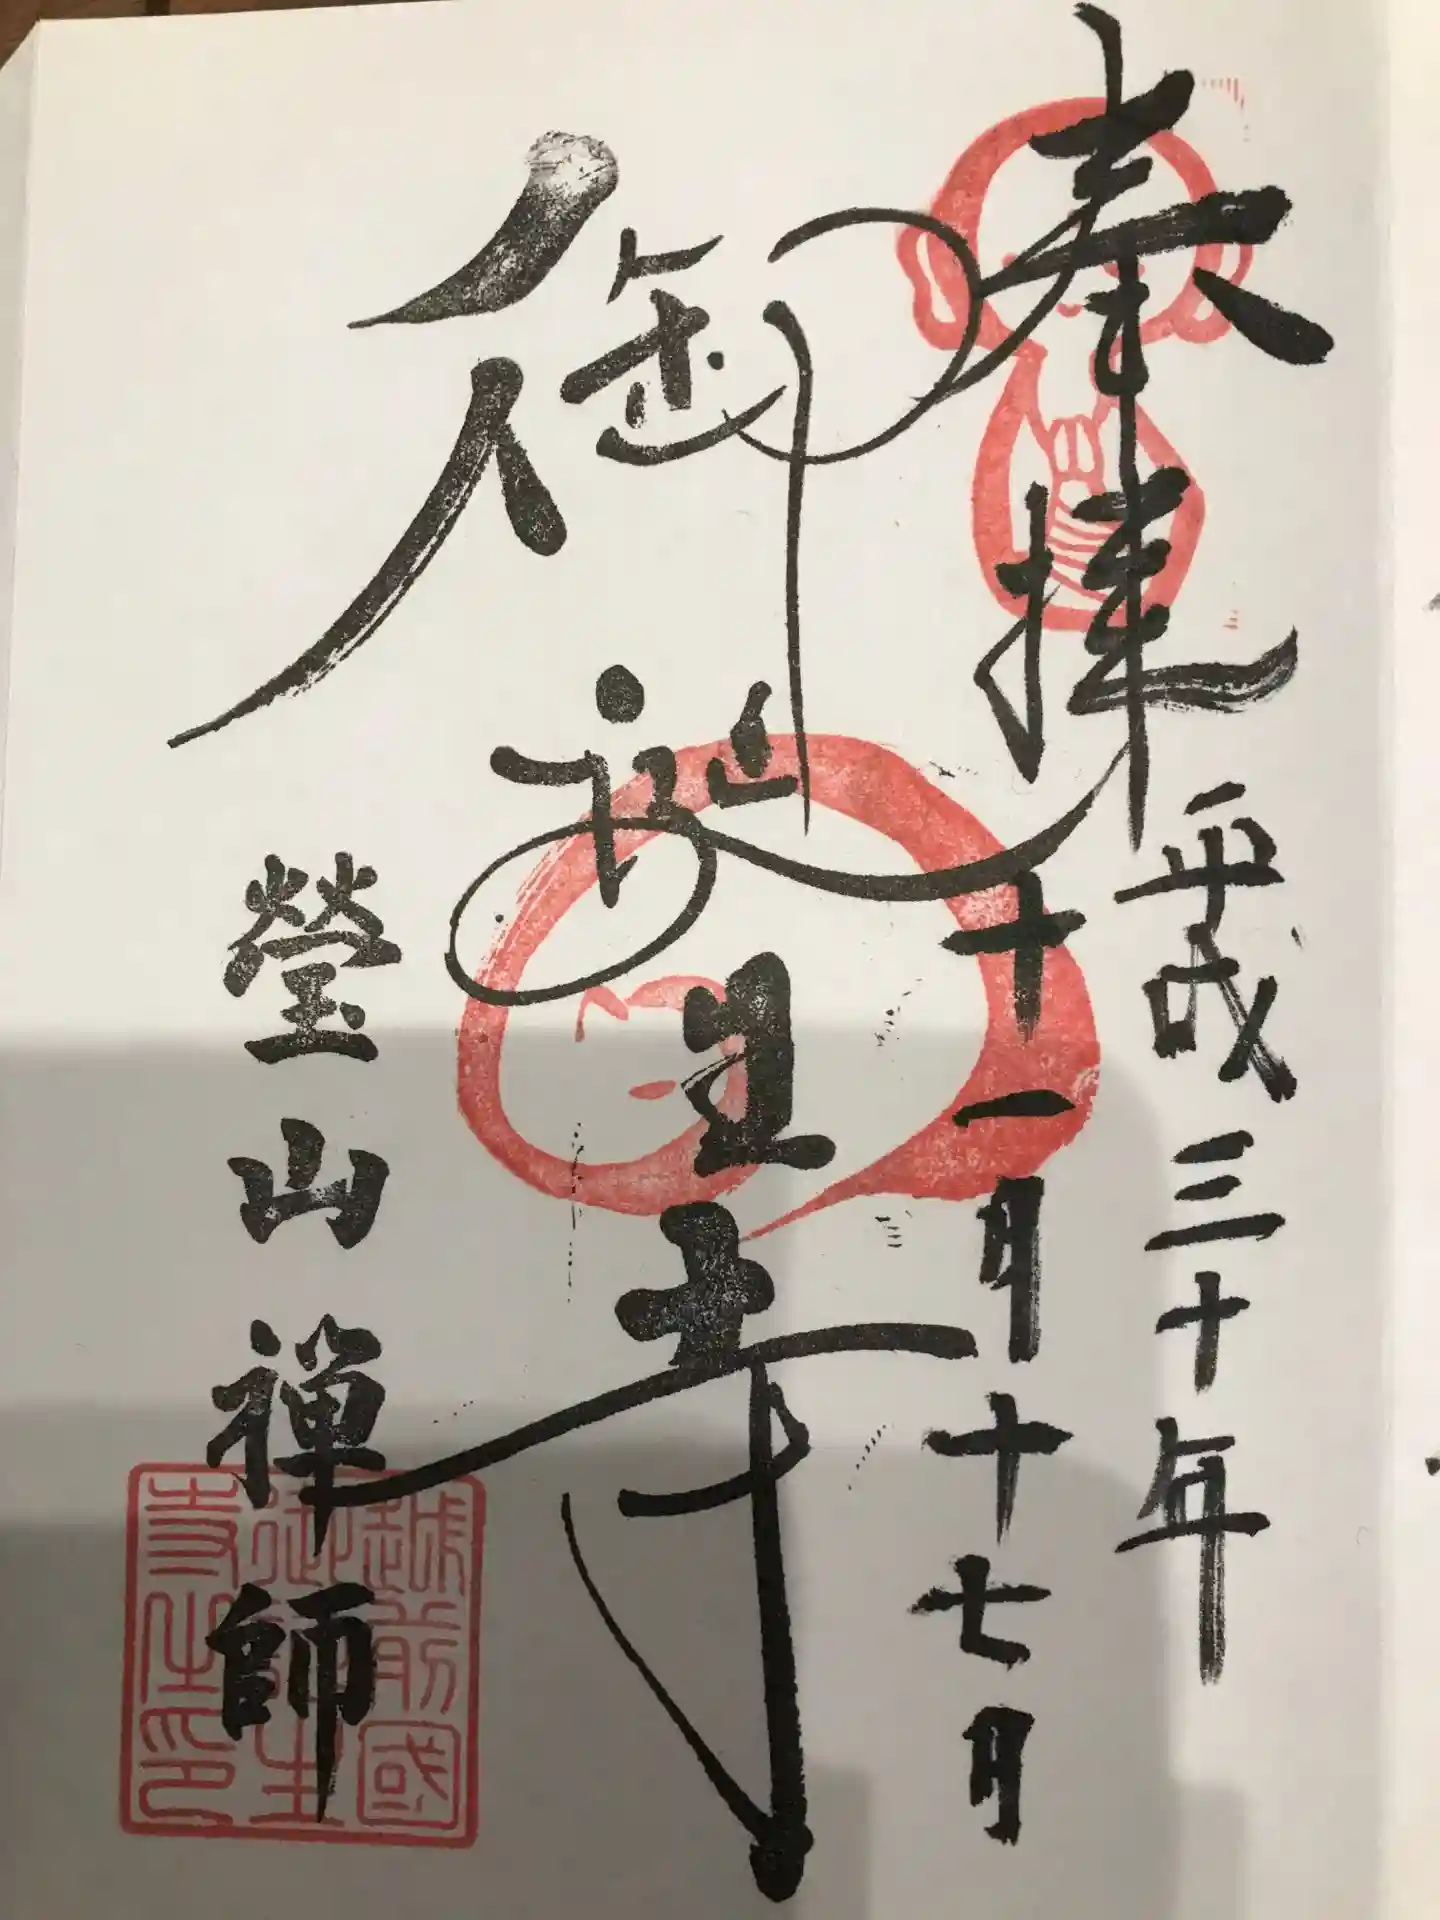 奉拝
平成三十年
十一月十七月
御誕生寺
瑩山禅師
越前國
御誕生
寺之印